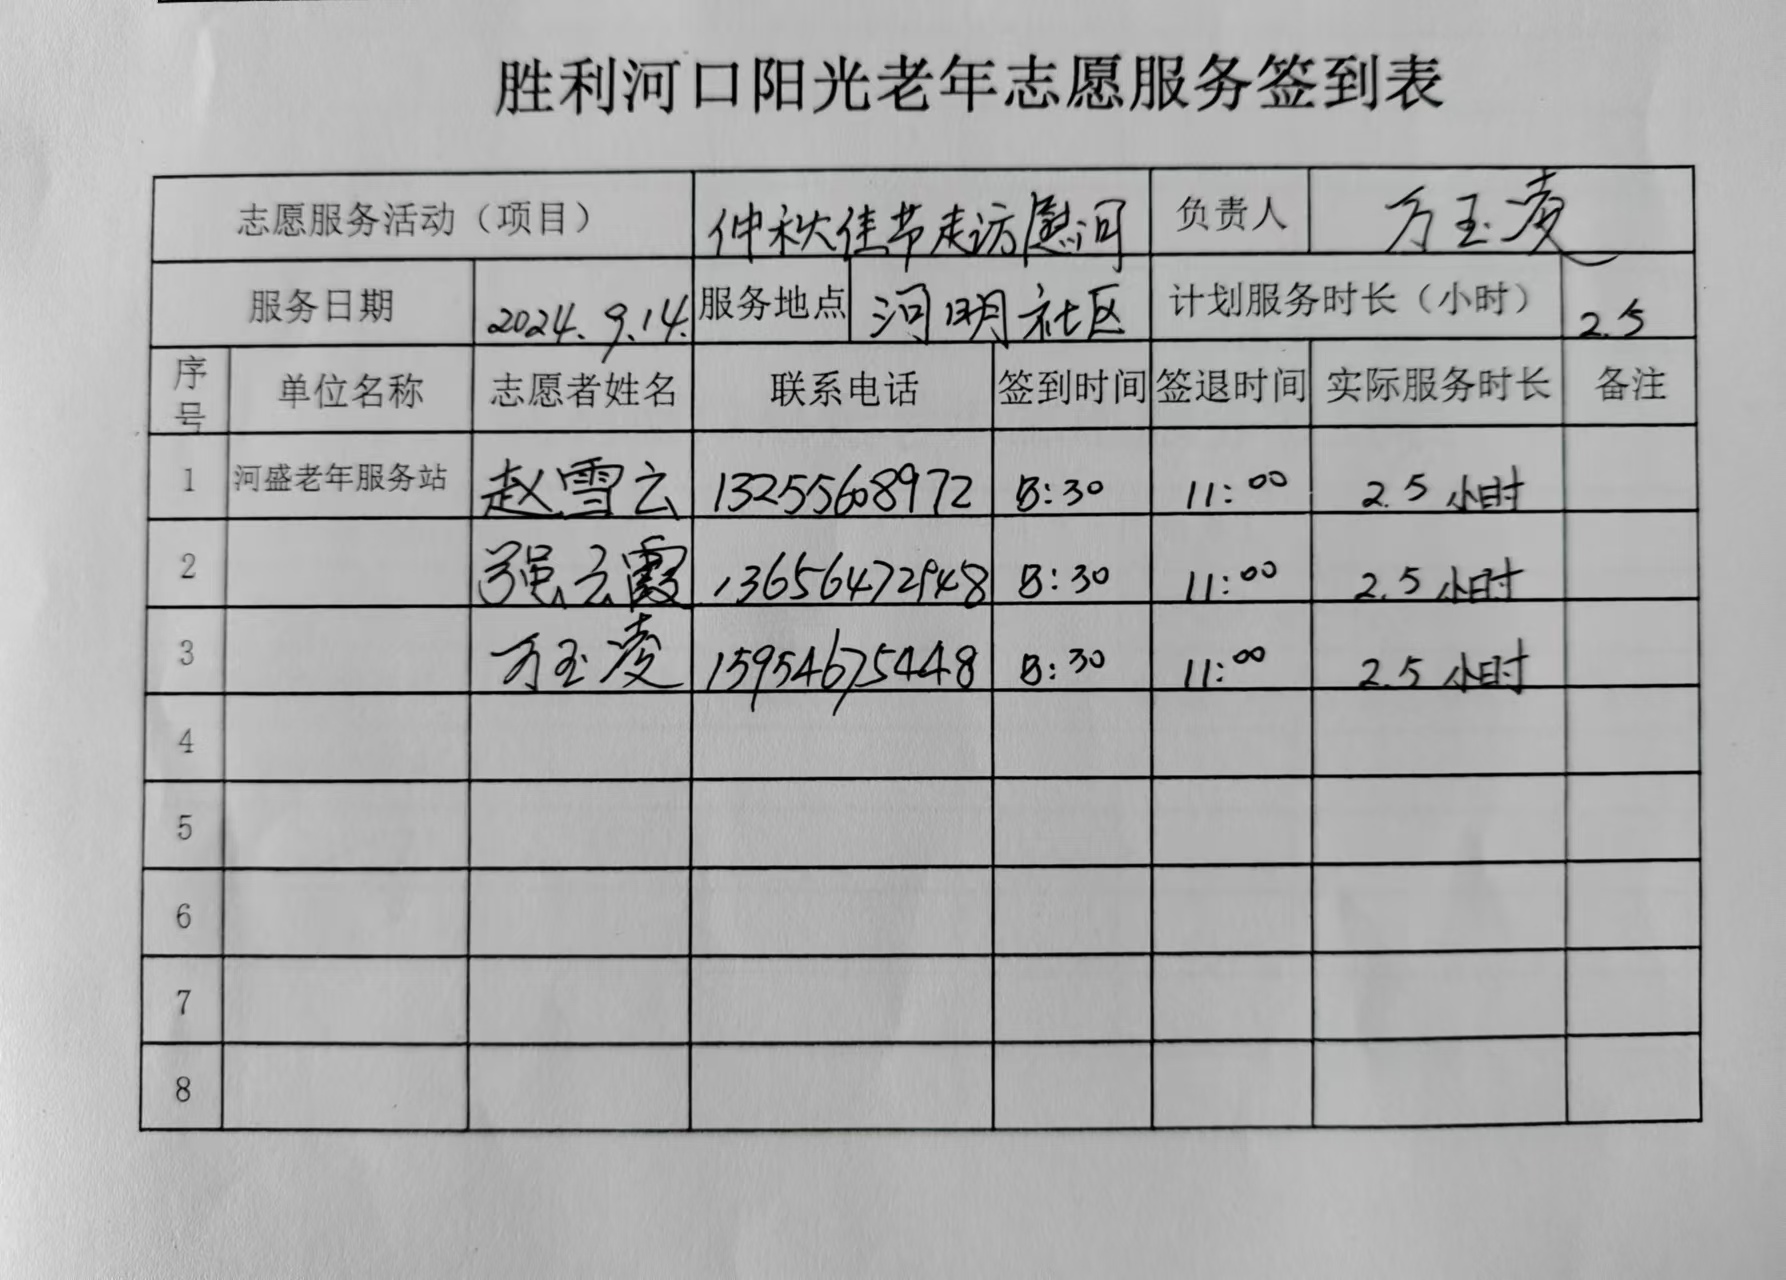 胜利河口阳光老年志愿服务签到表
志愿服务活动（项目） 仲秋佳节走访慰问 负责人 方玉凌
服务日期 2024.9.14. 服务地点 河明社区 计划服务时长（小时） 2.5
序号 单位名称 志愿者姓名 联系电话 签到时间 签退时间 实际服务时长 备注
1 河盛老年服务站 赵雪云 13255608972 8:30 11:00 2.5 小时
2 强云霞 13656472948 8:30 11:00 2.5 小时
3 方玉凌 15954675448 8:30 11:00 2.5 小时
4
5
6
7
8